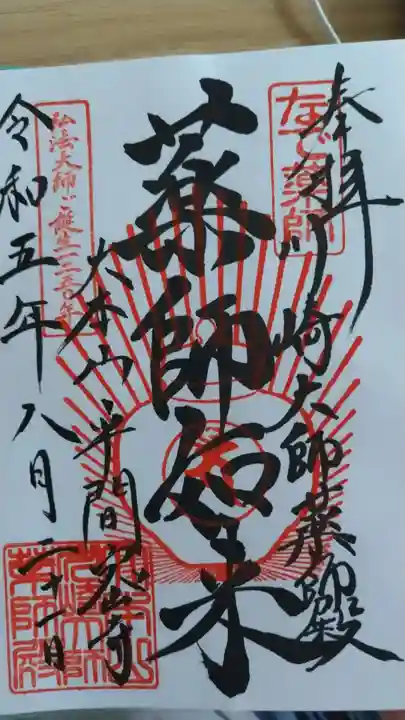 奉拝
川崎大師薬師殿
なで薬師
薬師如来
大本山平間寺
弘法大師ご誕生一二五〇年
令和五年八月二十一日